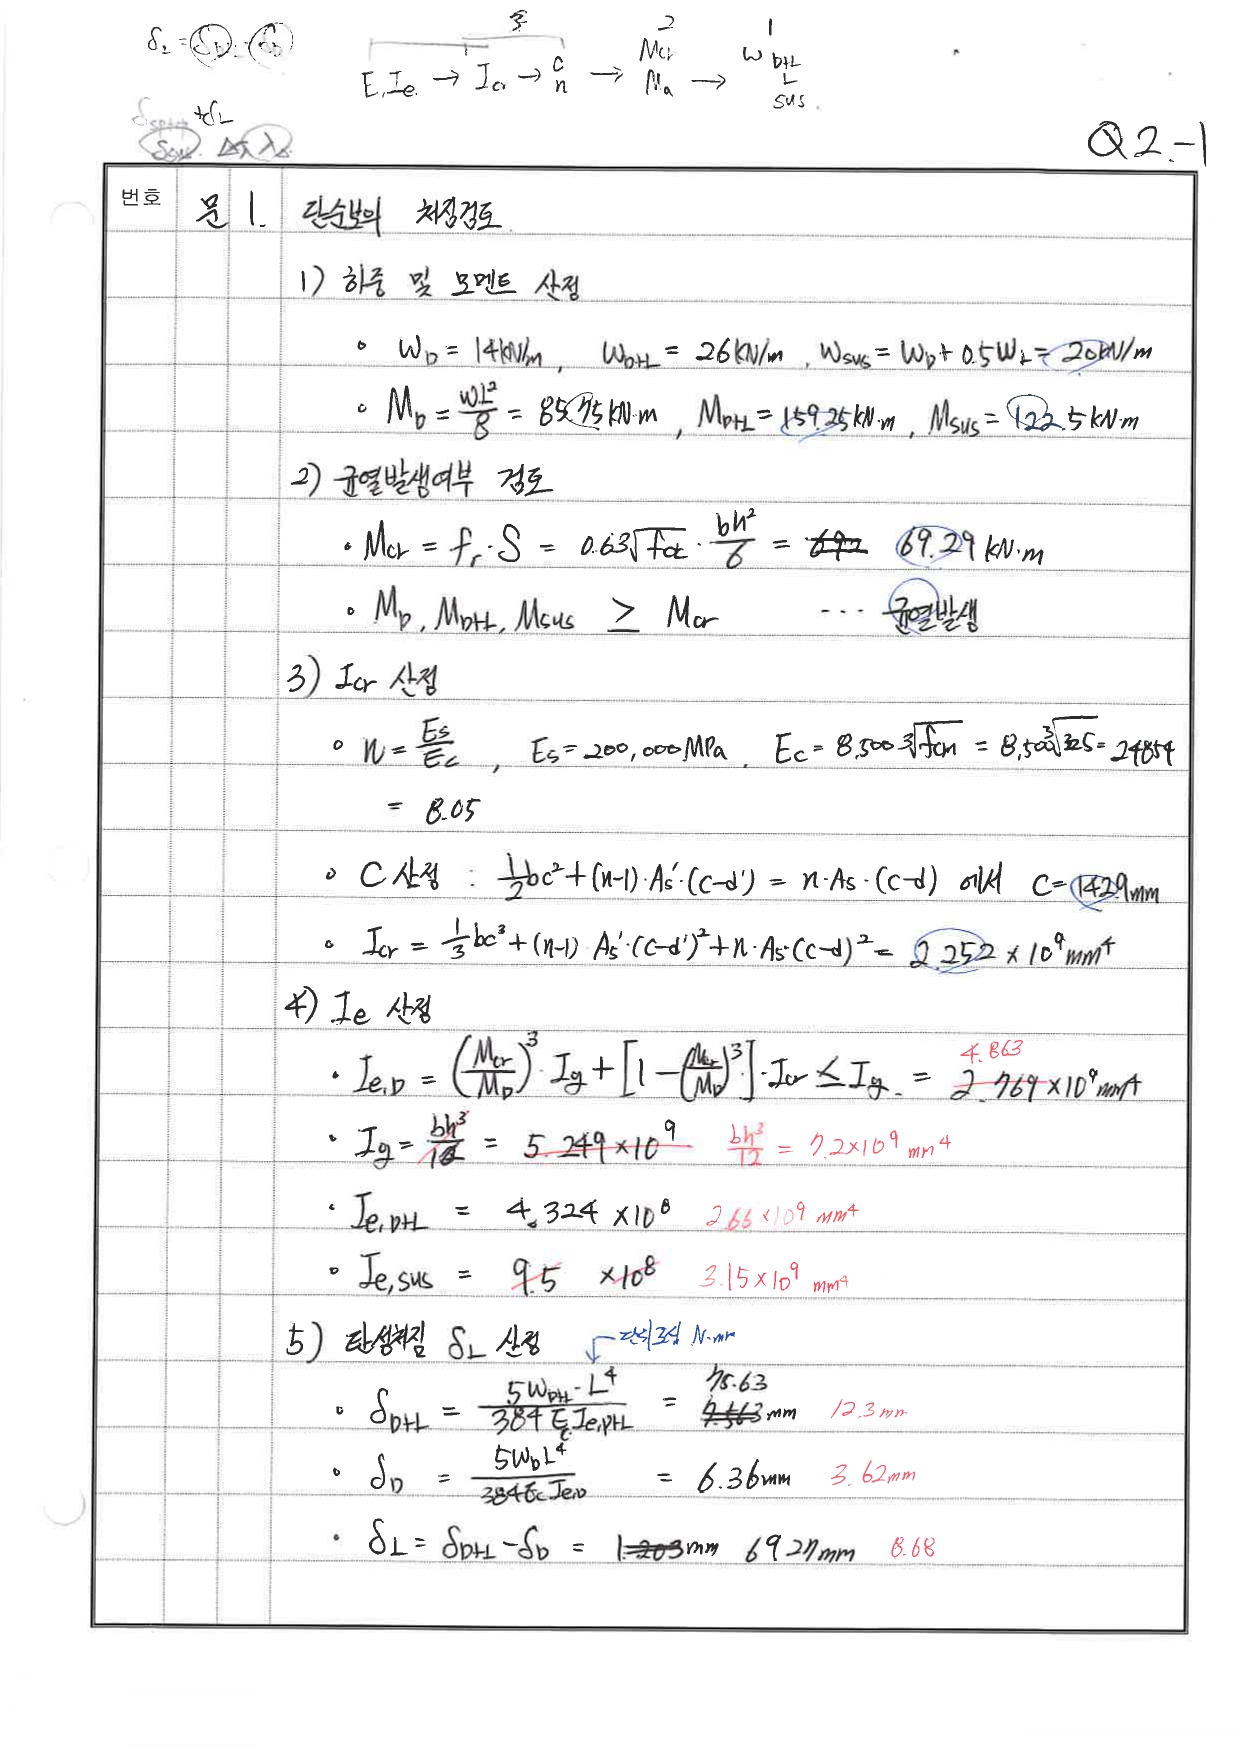 δL = δD+L - δD
③
E, Ie → Icr → c n → 2 Mcr Ma → 1 W D+L L sus.
+δL
δsus. λ
Q2.-1
번호 문 1. 단순보의 처짐검토.
1) 하중 및 모멘트 산정
∘ WD = 14kN/m, WD+L = 26kN/m, Wsus = WD + 0.5WL = 20kN/m
∘ MD = wL²/8 = 85.75kN·m, MD+L = 159.25kN·m, Msus = 122.5kN·m
2) 균열발생여부 검토
• Mcr = fr·S = 0.63√fck · bh²/6 = 692 69.29 kN·m
∘ MD, MD+L, Msus ≥ Mcr ··· 균열발생
3) Icr 산정
∘ n = Es/Ec, Es = 200,000MPa, Ec = 8,500 ³√fcm = 8,500 ³√25 = 24854
= 8.05
∘ C 산정 : ½bc² + (n-1)·As'·(c-d') = n·As·(c-d) 에서 C = 142.9mm
∘ Icr = ⅓bc³ + (n-1)·As'·(c-d')² + n·As·(c-d)² = 2.252 × 10⁹ mm⁴
4) Ie 산정
4.863
• Ie,D = (Mcr/MD)³·Ig + [1 - (Mcr/MD)³]·Icr ≤ Ig. = 2.769 × 10⁹ mm⁴
• Ig = bh³/12 = 5.249 × 10⁹ bh³/12 = 7.2×10⁹ mm⁴
• Ie,D+L = 4.324 × 10⁸ 2.66 × 10⁹ mm⁴
∘ Ie,sus = 9.5 × 10⁸ 3.15 × 10⁹ mm⁴
5) 탄성처짐 δL 산정 N·mm
∘ δD+L = 5WD+L·L⁴ / 384 Ec Ie,D+L = 75.63 7.563mm 12.3mm
∘ δD = 5WDL⁴ / 384Ec Ie,D = 6.36mm 3.62mm
• δL = δD+L - δD = 1.203mm 69.27mm 8.68